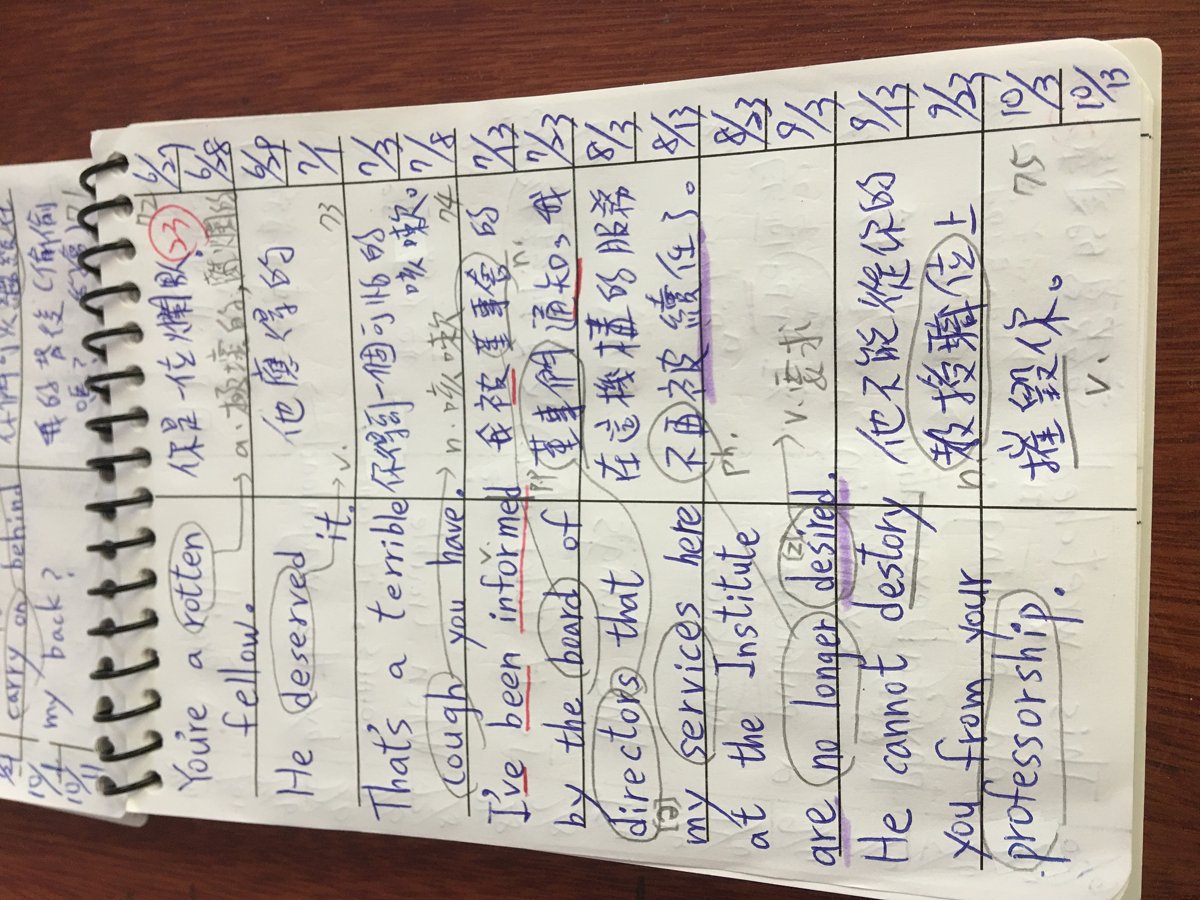 carry on behind
my back?
我的背後(偷偷
10/1
10/11
You're a rotten 你是一位爛臥 23 72 6/27
→ a. 極壞的,腐爛的 6/28
fellow.
He deserved 他應得的 6/29
it. → v. 73 7/1
That's a terrible 你得到一個可怕的 7/3
咳嗽。
cough you have. → n. 咳嗽 74 7/8
I've been informed 我被董事會的 7/13
v. pp n.
by the board of 董事們通知,我 7/23
directors that 在這機構的服務 8/3
[ə]
my services here 不再被續任了。 8/13
at the Institute ph. 8/23
[z]
are no longer desired. → v. 要求 9/3
He cannot destory 他不能從你的 9/13
you from your 教授職位上 9/23
n
professorship. 摧毀你。 75 10/3
v. 10/13